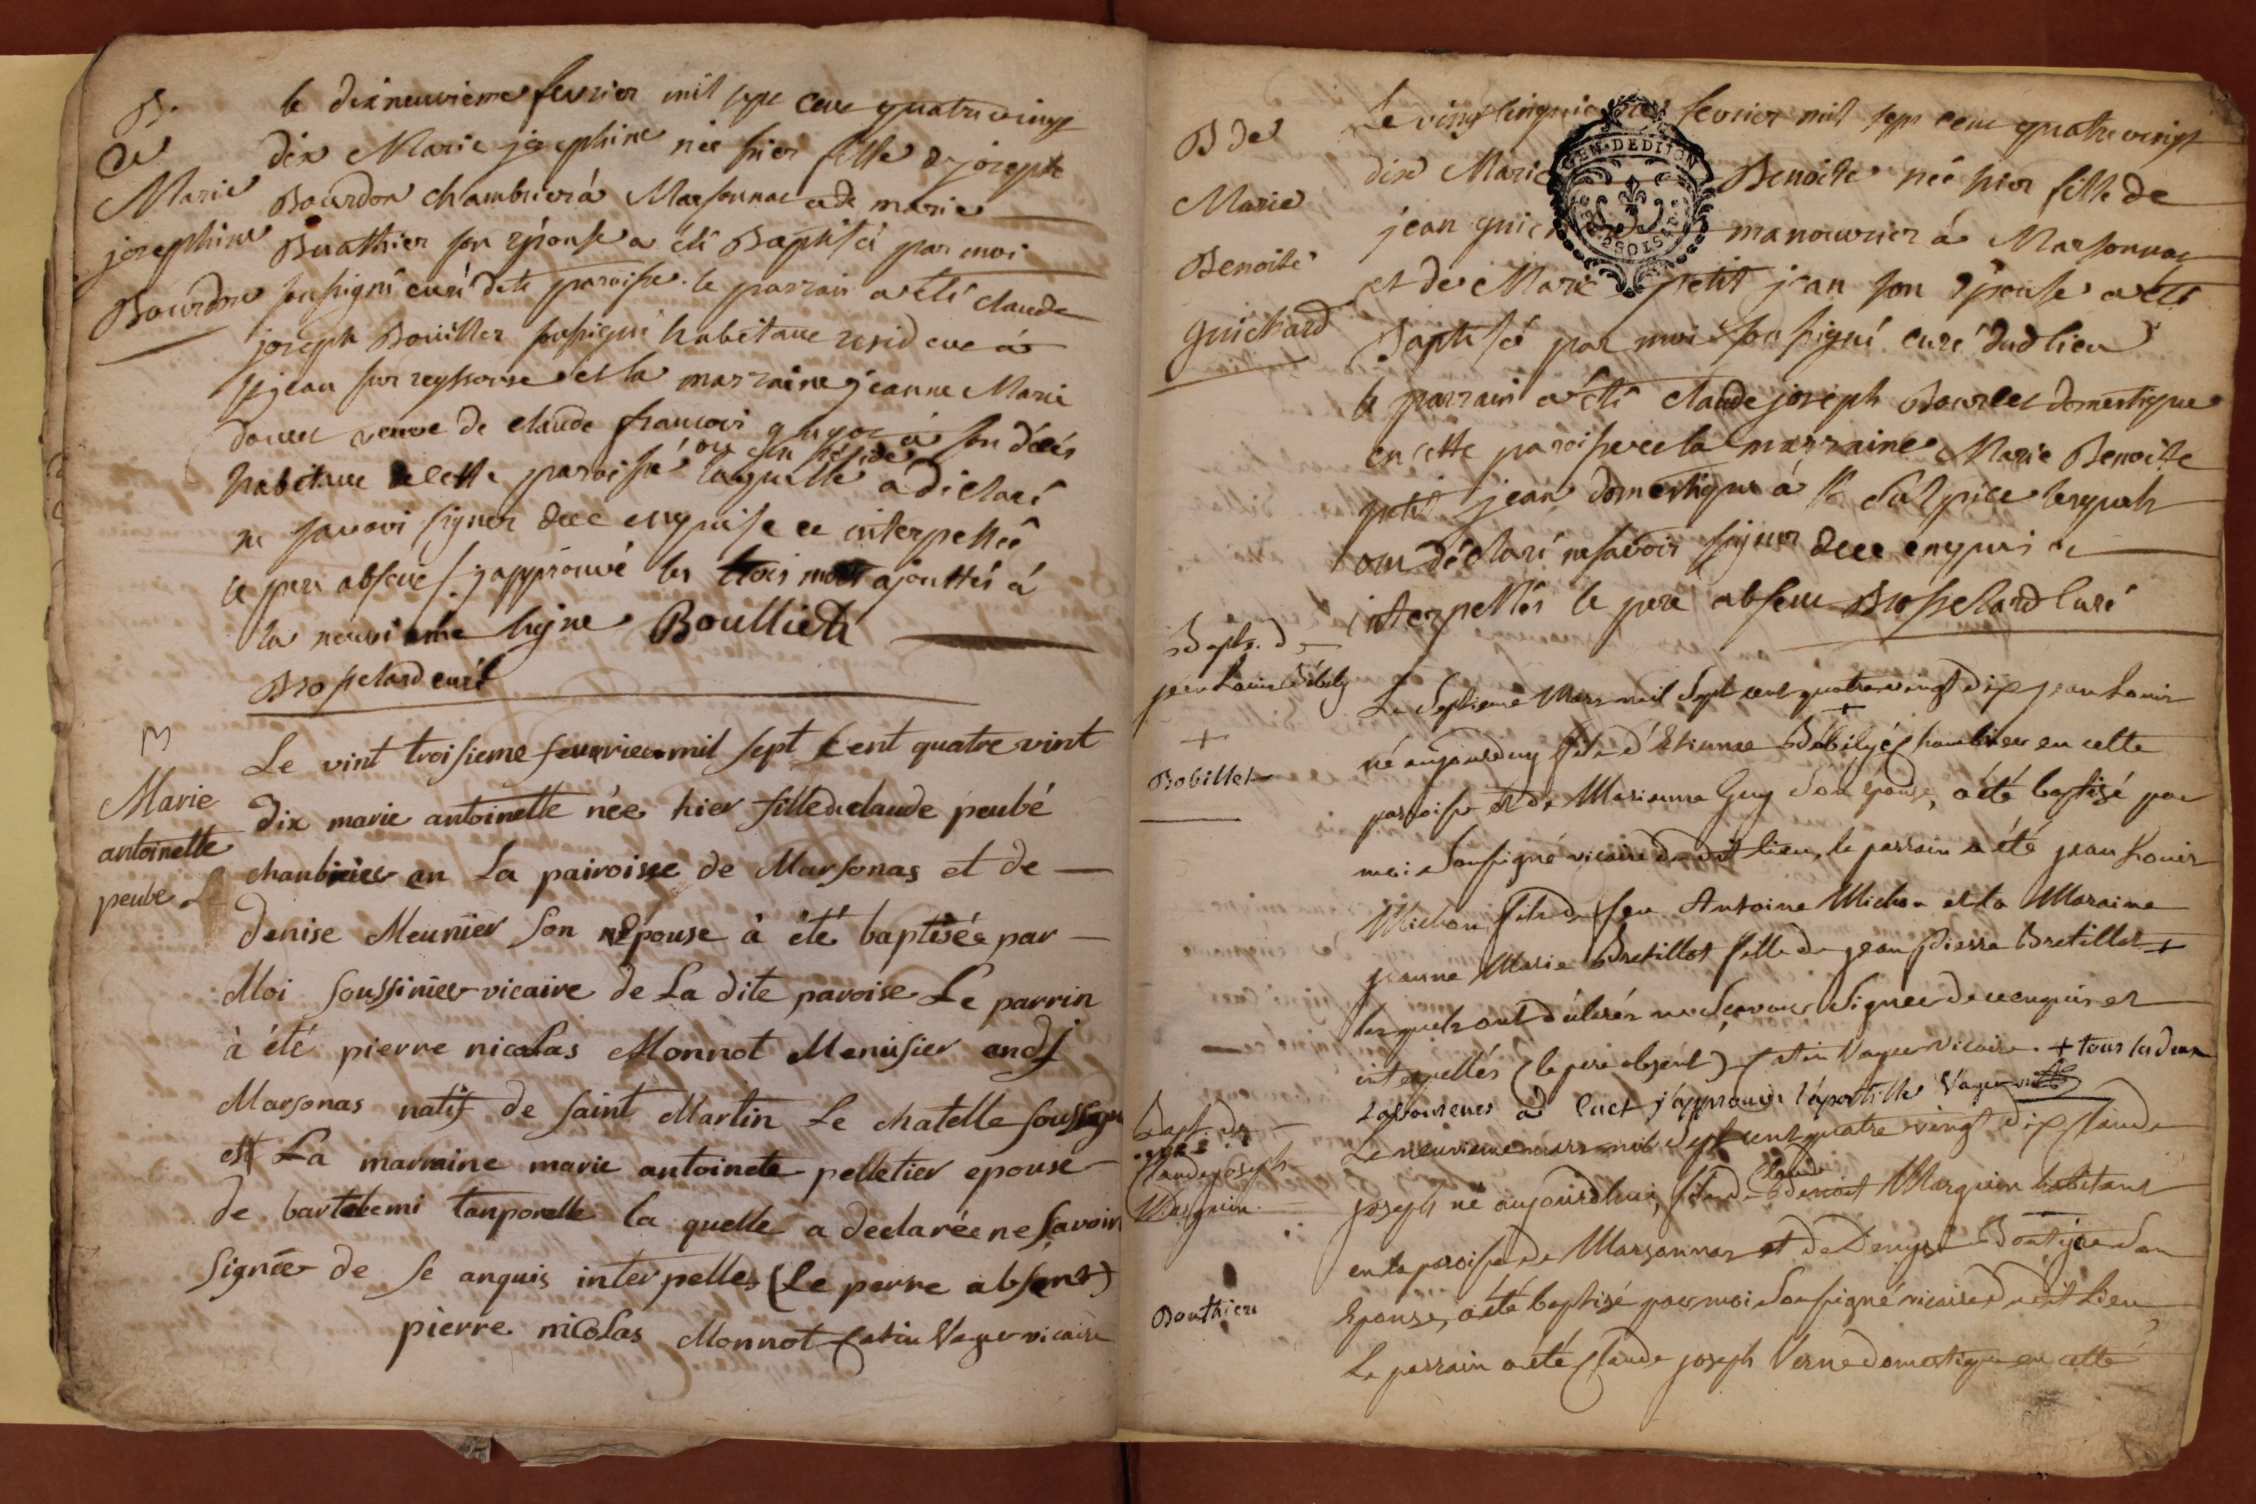 B.
de
Marie
josephine
Bourdon
le dixneuvieme fevrier mil sept cent quatre vingt
dix Marie josephine née hier fille de joseph
Bourdon chambrier à Marsonnac et de marie
Buathier son épouse a été Baptisée par moi
soussigné curé de la paroisse. le parrain a été claude
joseph Bouillier soussigné habitant resident à
st jean sur reyssouse et la marraine jeanne Marie
douer veuve de claude francois guyot à son décés
habitant de cette paroisse où elle réside laquelle a déclaré
ne savoir signer de ce enquise et interpellée
le pere absent / j'approuvé les trois mots ajouttés à
la neuvieme ligne Boullieth
Brosselard curé
B
Marie
antoinette
peube
Le vint troisieme fevvrier mil sept cent quatre vint
dix marie antoinette née hier fille de claude peubé
chanbrier en La pairoisse de Marsonas et de
denise Meunier son epouse à été baptisée par
Moi soussinier vicaire de La dite paroise Le parrin
à été pierre nicolas Monnot Menusier en
Marsonas natif de saint Martin Le chatelle soussigne
est La marraine marie antoinete pelletier epouse
de bartelemi tanporelle la quelle a declarée ne savoir
signée de se anquis interpelles (Le perre absent)
pierre nicolas Monnot Catin Vayer vicaire
B de
Marie
Benoite
guichard
Le vingt cinquieme fevrier mil sept cent quatre vingt
dix Marie Benoite née hier fille de
jean guichard manouvrier à Marsonnac
et de Marie petit jean son épouse a été
Baptisée par moi soussigné curé dud lieu
le parrain a été claude joseph Bourlet domestique
en cette paroisse et la marraine Marie Benoitte
petit jean domestique à st Sulpice lesquels
ont déclaré ne savoir signer de ce enquis et
interpellés le pere absent Brosselard Curé
Bapt. de
jean Louis Bôbily
+
Bobillet
Le Septieme Mars mil Sept cent quatre vingt dix jean Louis
né aujourd'huy fils d'Etienne Bôbilyé chambrier en cette
paroisse et de Marianne Guy Son épouse, a été baptisé par
moi Soussigné vicaire du dit lieu, le parrain a été jean Louis
Michon fils de feu Antoine Michon et la Maraine
jeanne Marie Bretillot fille de jean pierre Bretillot +
lesquels ont déclarés ne Sçavoir Signer de ce enquis et
interpellés (le pere absent) Catin Vayer vicaire. + tous les deux
Laboureurs à Cuet j'approuve l'apostille Vayer
Bapt. de
Claude joseph
Marguin.
Bouthier
Le neuvieme mars mil Sept cent quatre vingt dix Claude
joseph né aujourdhui, fils de Claude Benoit Marguin habitant
en la paroisse de Marsonnas et de Denyse Bontijoz Son
Epouse, a été baptisé par moi Soussigné vicaire du dit Lieu,
Le parrain a été Claude joseph Verne domestique en cette
GEN. DE DIJON